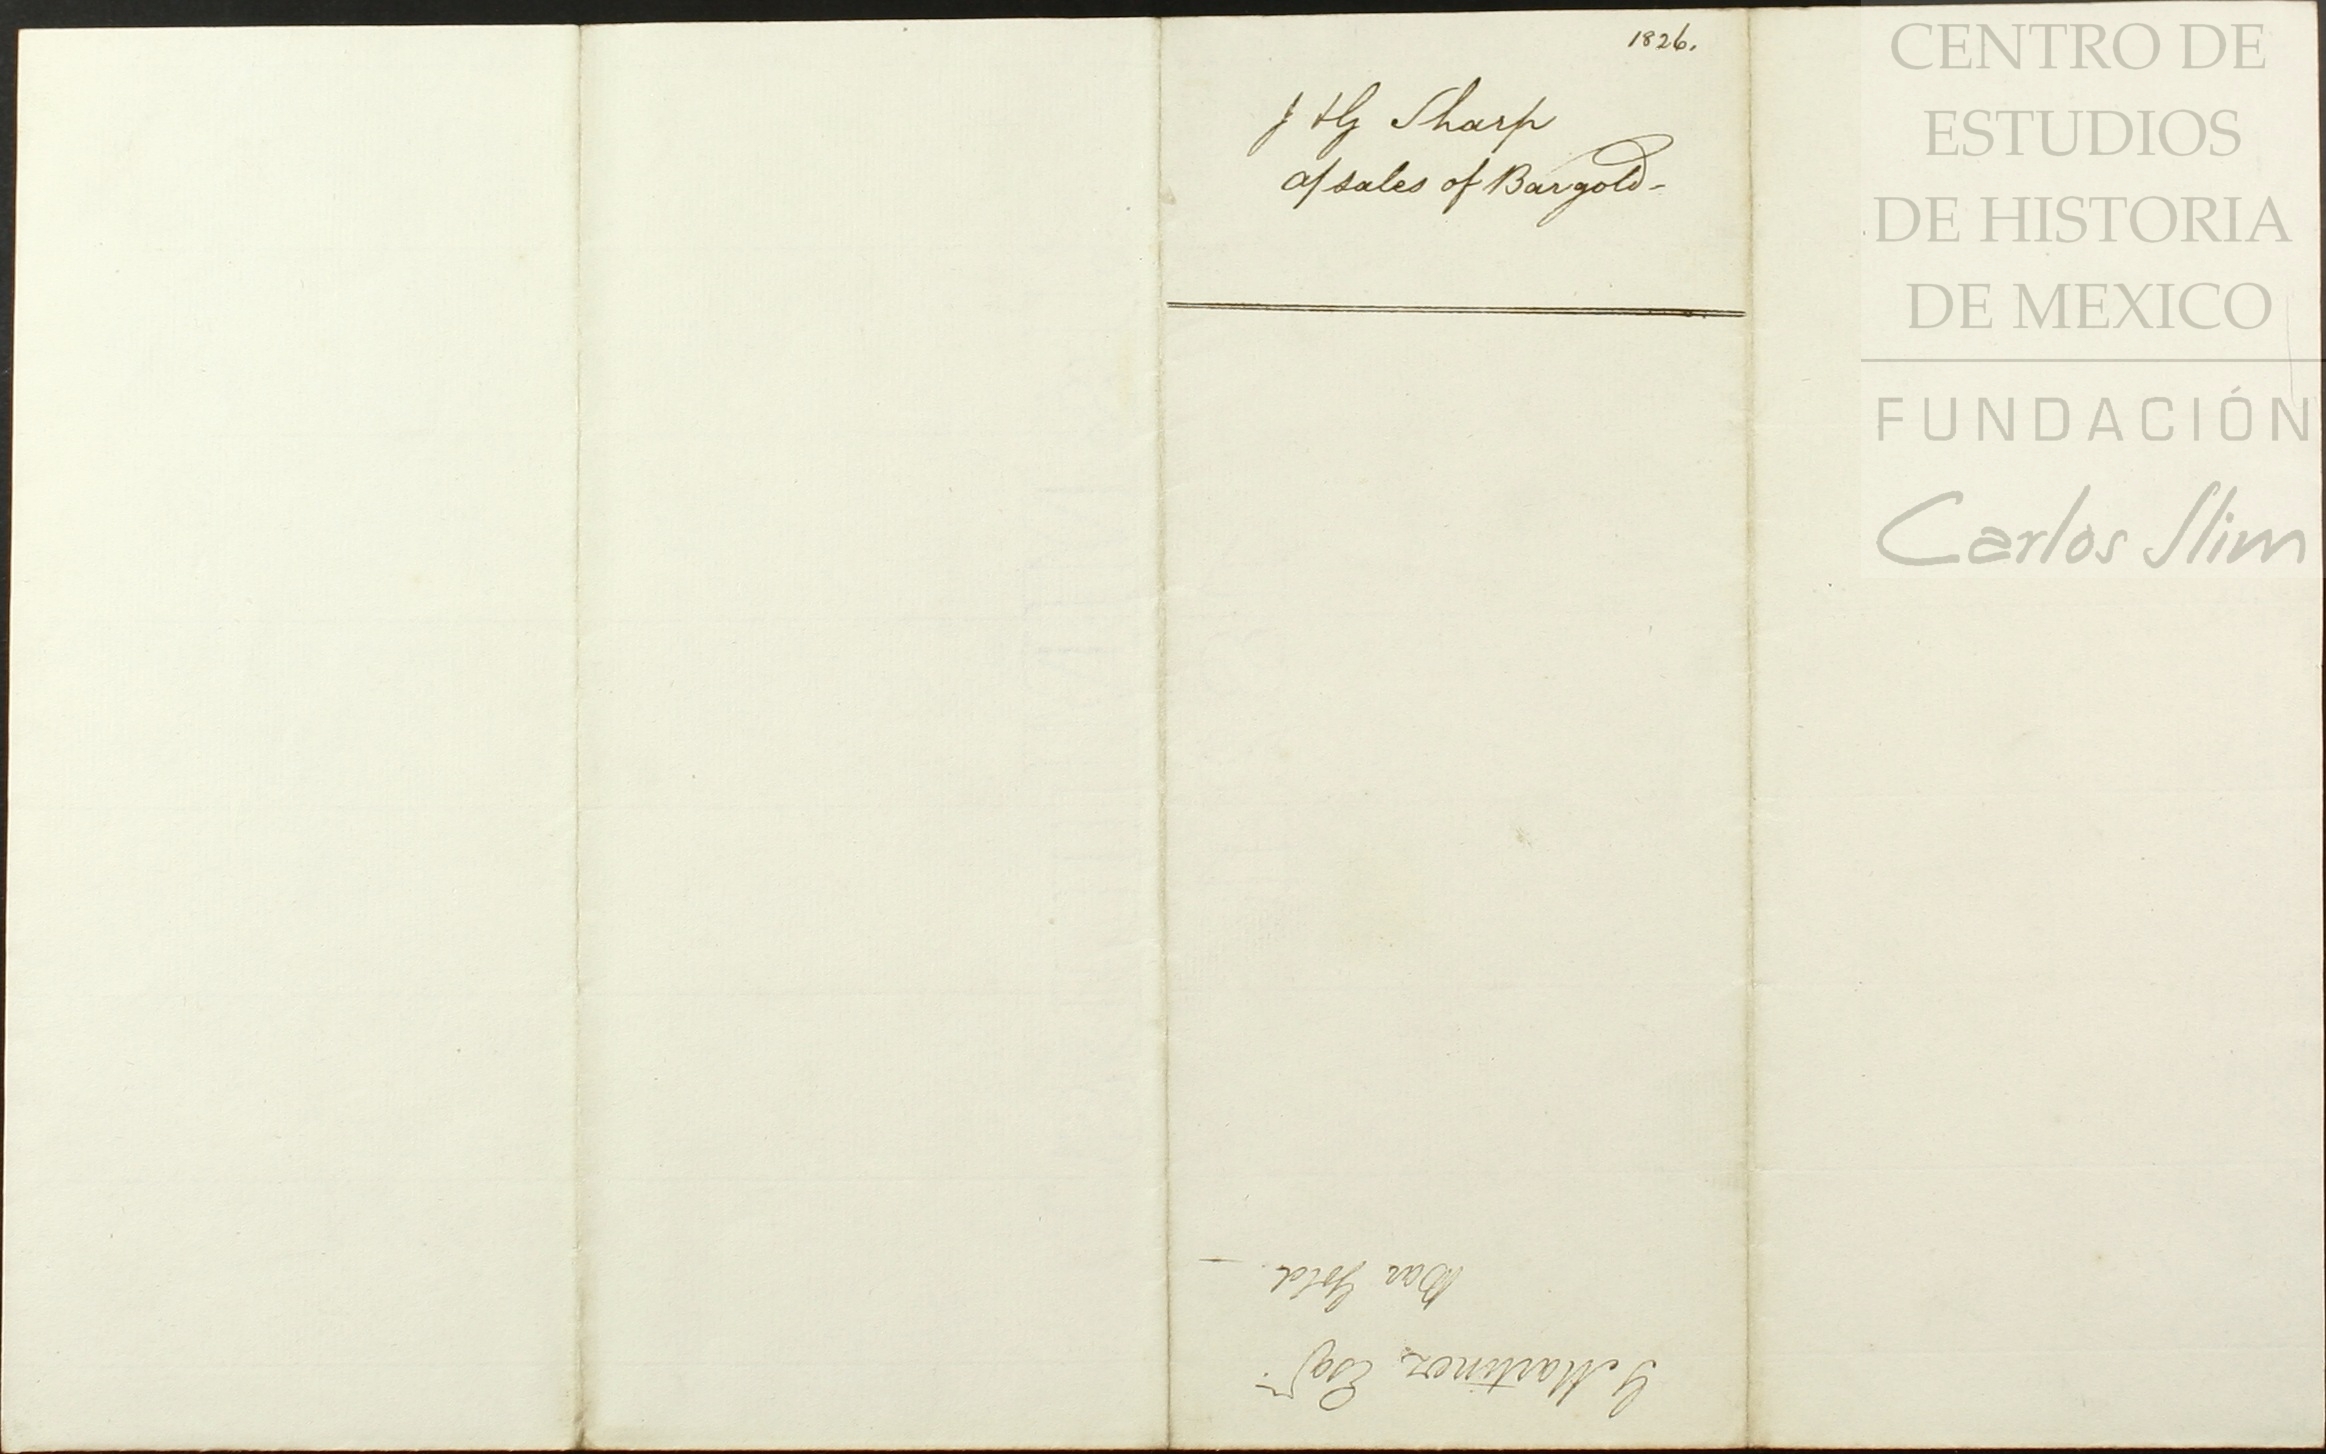 1826.
J & G Sharp
a/ sales of Bar gold -
G Martinez Esqr.
Bar Gold —
CENTRO DE
ESTUDIOS
DE HISTORIA
DE MEXICO
FUNDACIÓN
Carlos Slim